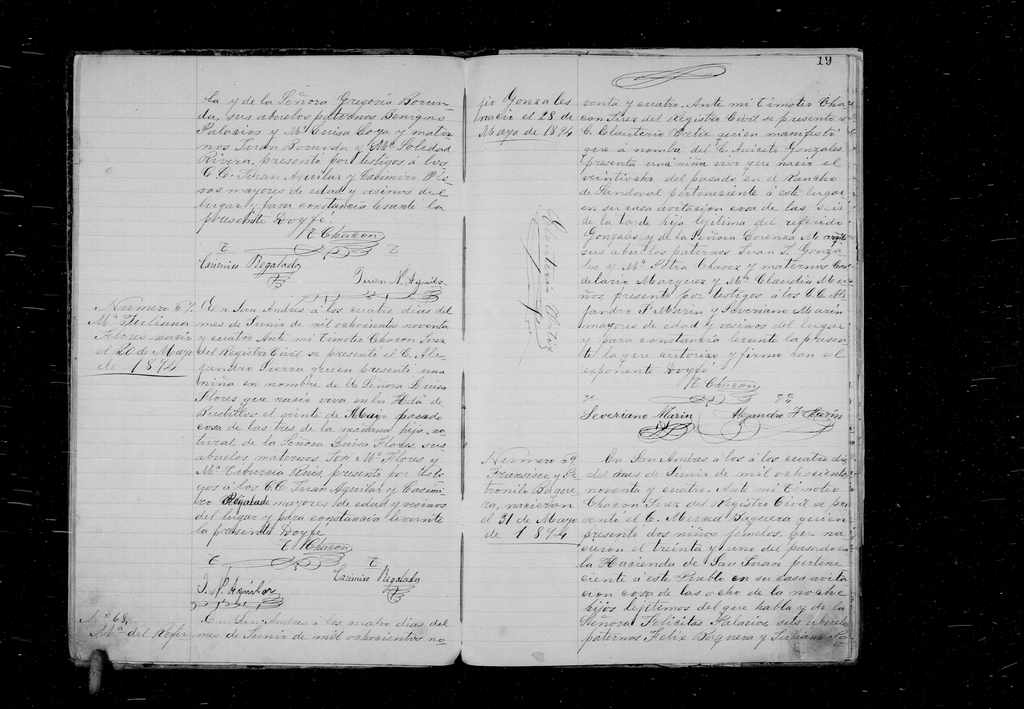 la y de la Señora Gregoria
da, sus abuelos paternos Benigno
Palacios y Ma. Luisa y mater
nos Juan y Ma. Soledad
Rivera, presentó por testigos á los
C.C. Juan Aguilar y Casimiro
mayores de edad y vecinos del
lugar y para constancia levanté la
presente Doy fé.
T. Chacon
Casimiro Regalado
Juan N. Aguilar
Numero 67.
Ma. Juliana
Flores nació
el 20 de Mayo
de 1894
En San Andrés á los cuatro dias del
mes de Junio de mil ochocientos noventa
y cuatro Ante mi Timoteo Chacon Juez
del Registro Civil se presentó el C. Ale
jandro Sierra quien presentó una
niña en nombre de la Señora Luisa
Flores que nació viva en la Hda. de
Bustillos el de Mayo pasado
cosa de las tres de la mañana hija na
tural de la Señora Luisa Flores sus
abuelos maternos Ma. Flores y
Ma. Tiburcia presentó por testi
gos á los C.C. Juan Aguilar y Casimi
ro Regalado mayores de edad y vecinos
del lugar y para constancia levanté
la presente Doy fé.
T. Chacon
J. N. Aguilar
Casimiro Regalado
No. 68.
del
En San Andrés á los cuatro dias del
mes de Junio de mil ochocientos no
19
Gonzales
nació el 28 de
Mayo de 1894
venta y cuatro. Ante mi Timoteo Cha
con Juez del Registro Civil se presentó el
C. quien manifestó
que á nombre del C. Aniceto Gonzales
presenta una niña viva que nació el
veintiocho del pasado en el Rancho
de Sandoval perteneciente á este lugar
en su casa avitacion cosa de las seis
de la tarde hija lijitima del referido
Gonzales y de la Señora Lorenza
sus abuelos paternos Juan Gonza
les y Ma. Petra Chavez y maternos Can
delario Marquez y Ma. Claudia
presentó por testigos á los C.C. Ale
jandro F. Marin y Severiano Marin
mayores de edad y vecinos del lugar
y para constancia levanté la presen
te la que autorizo y firmo con el
esponente Doy fé.
T. Chacon
Severiano Marin
Alejandro F. Marin
Numero 69
Francisco y Pe
tronilo Baque
ra, nacieron
el 31 de Mayo
de 1894
En San Andres á los á los cuatro di
del mes de Junio de mil ochocientos
noventa y cuatro. Ante mi Timoteo
Chacon Juez del Registro Civil se pre
sentó el C. Baquera quien
presentó dos niños jemelos que na
cieron el treinta y uno del pasado en
la Hacienda de San Juan pertene
ciente á este Pueblo en su casa avita
cion cosa de las ocho de la noche
hijos legítimos del que habla y de la
Señora Felicitas Palacios sus abuelos
paternos Felix Baquera y